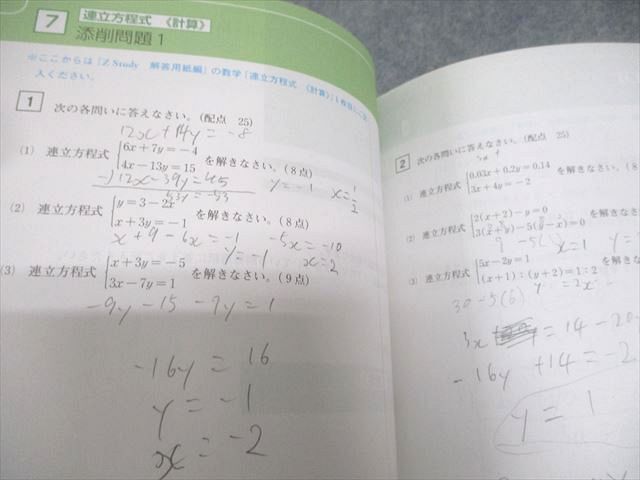 7 連立方程式 《計算》
添削問題 1
※ここからは『Z Study 解答用紙編』の数学「連立方程式 《計算》」
入ください。
1 次の各問いに答えなさい。(配点 25)
12x+14y=-8
(1) 連立方程式 {6x+7y=-4
4x-13y=15 を解きなさい。(8点)
-)12x-39y=45
53y=-53
y=-1 x=1/2
(2) 連立方程式 {y=3-2x
x+3y=-1 を解きなさい。(8点)
x+9-6x=-1 -5x=-10
y=-1 x=2
(3) 連立方程式 {x+3y=-5
3x-7y=1 を解きなさい。(9点)
-9y-15-7y=1
-16y=16
y=-1
x=-2
2 次の各問いに答えなさい。(配点 25)
(1) 連立方程式 {0.03x+0.2y=0.14
3x+4y=-2 を解きなさい。(8
(2) 連立方程式 {2(x+2)-y=0
3(x+y)-5(y-x)=0 を解きなさい。
x=1
(3) 連立方程式 {5x-2y=1
(x+1):(y+2)=1:2 を解きなさい。
=14-20
-16y+14=-2
y=1